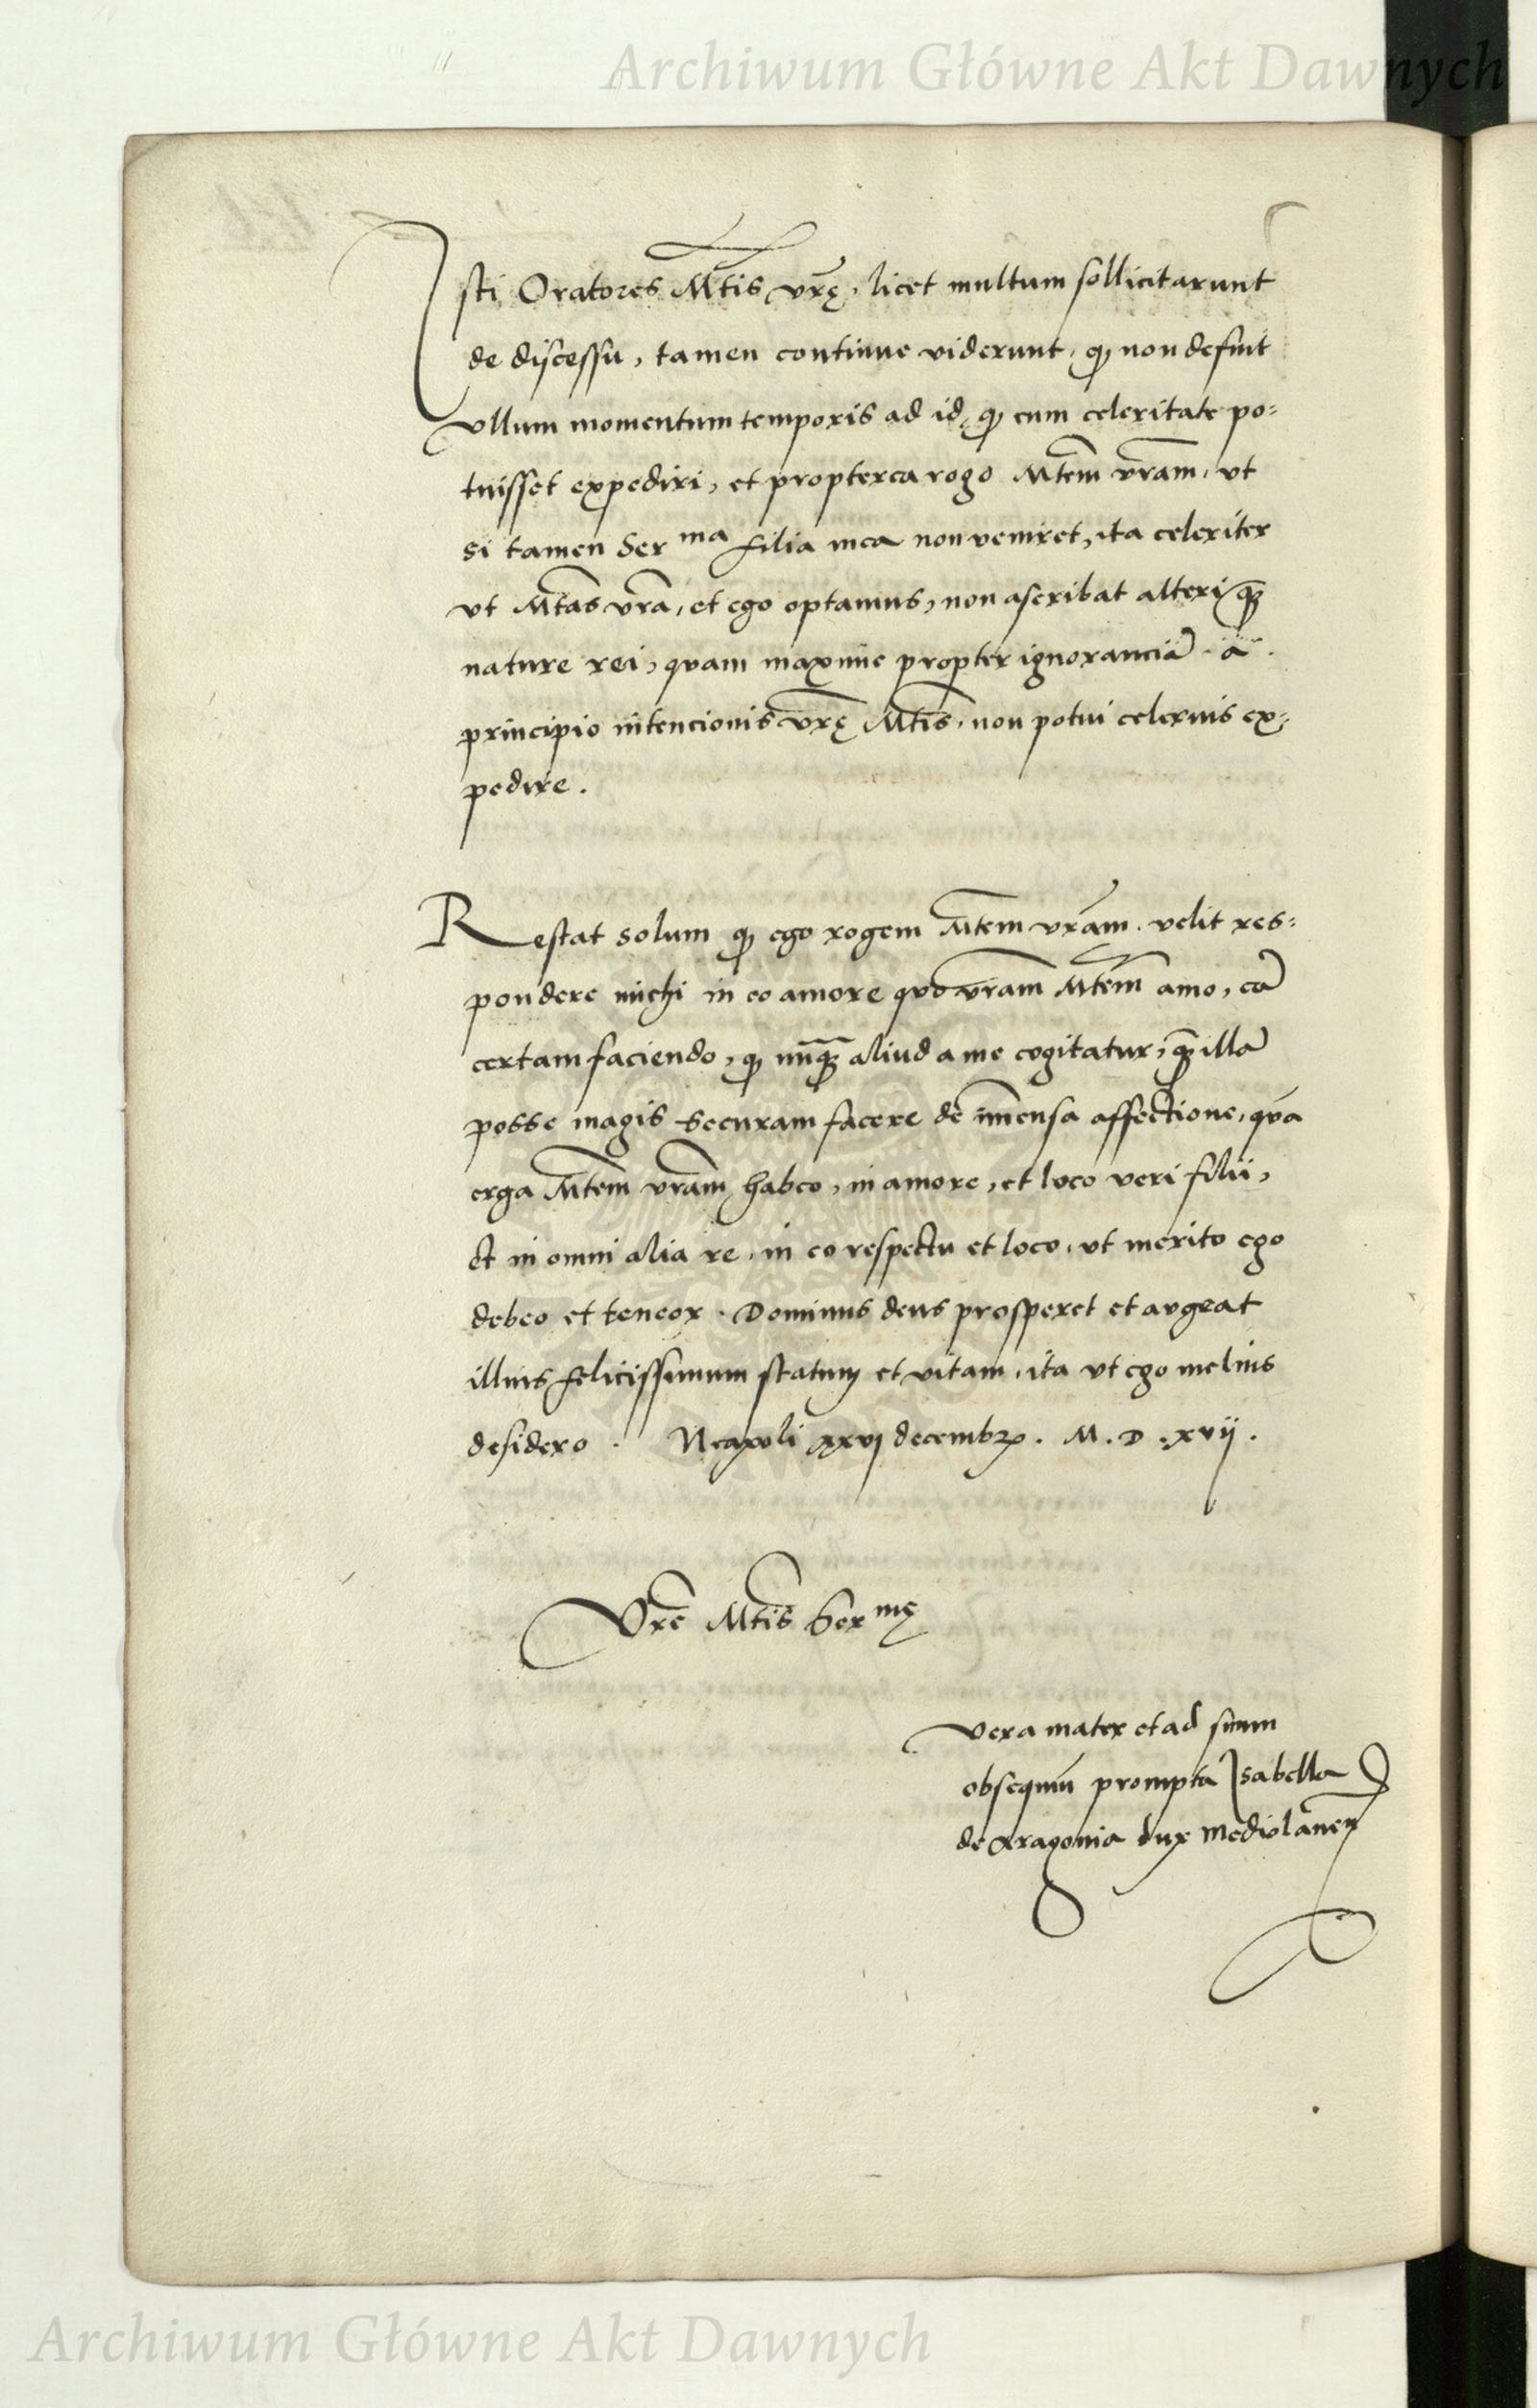 Archiwum Główne Akt Dawnych
Isti Oratores Mtis vrę, licet multum sollicitarunt
de discessu, tamen continue viderunt, qȝ non defuit
vllum momentum temporis ad id, qȝ cum celeritate po-
tuisset expediri, et propterea rogo Mtem vram, vt
si tamen Ser ma filia mea non veniret, ita celeriter
vt Mtas vra, et ego optamus, non ascribat alteri qȝ
nature rei, quam maxime propter ignoranciā a
principio intencionis vrę Mtis, non potui celerius ex-
pedire.
Restat solum qȝ ego rogem Mtem vram, velit res-
pondere michi in eo amore quo vram Mtem amo, eā
certam faciendo, qȝ nūqȝ aliud a me cogitatur, qȝ illā
posse magis securam facere de īmensa affectione, quā
erga Mtem vram habeo, in amore, et loco veri filii,
et in omni alia re, in eo respectu et loco, vt merito ego
debeo et teneor. Dominus deus prosperet et augeat
illius felicissimum statum et vitam, ita vt ego melius
desidero. Neapoli xxvj decembr. M. D. xvij.
Vre Mtis Ser mę
Vera mater et ad suum
obsequiū prompta Isabella
de Aragonia dux Mediolanen
Archiwum Główne Akt Dawnych